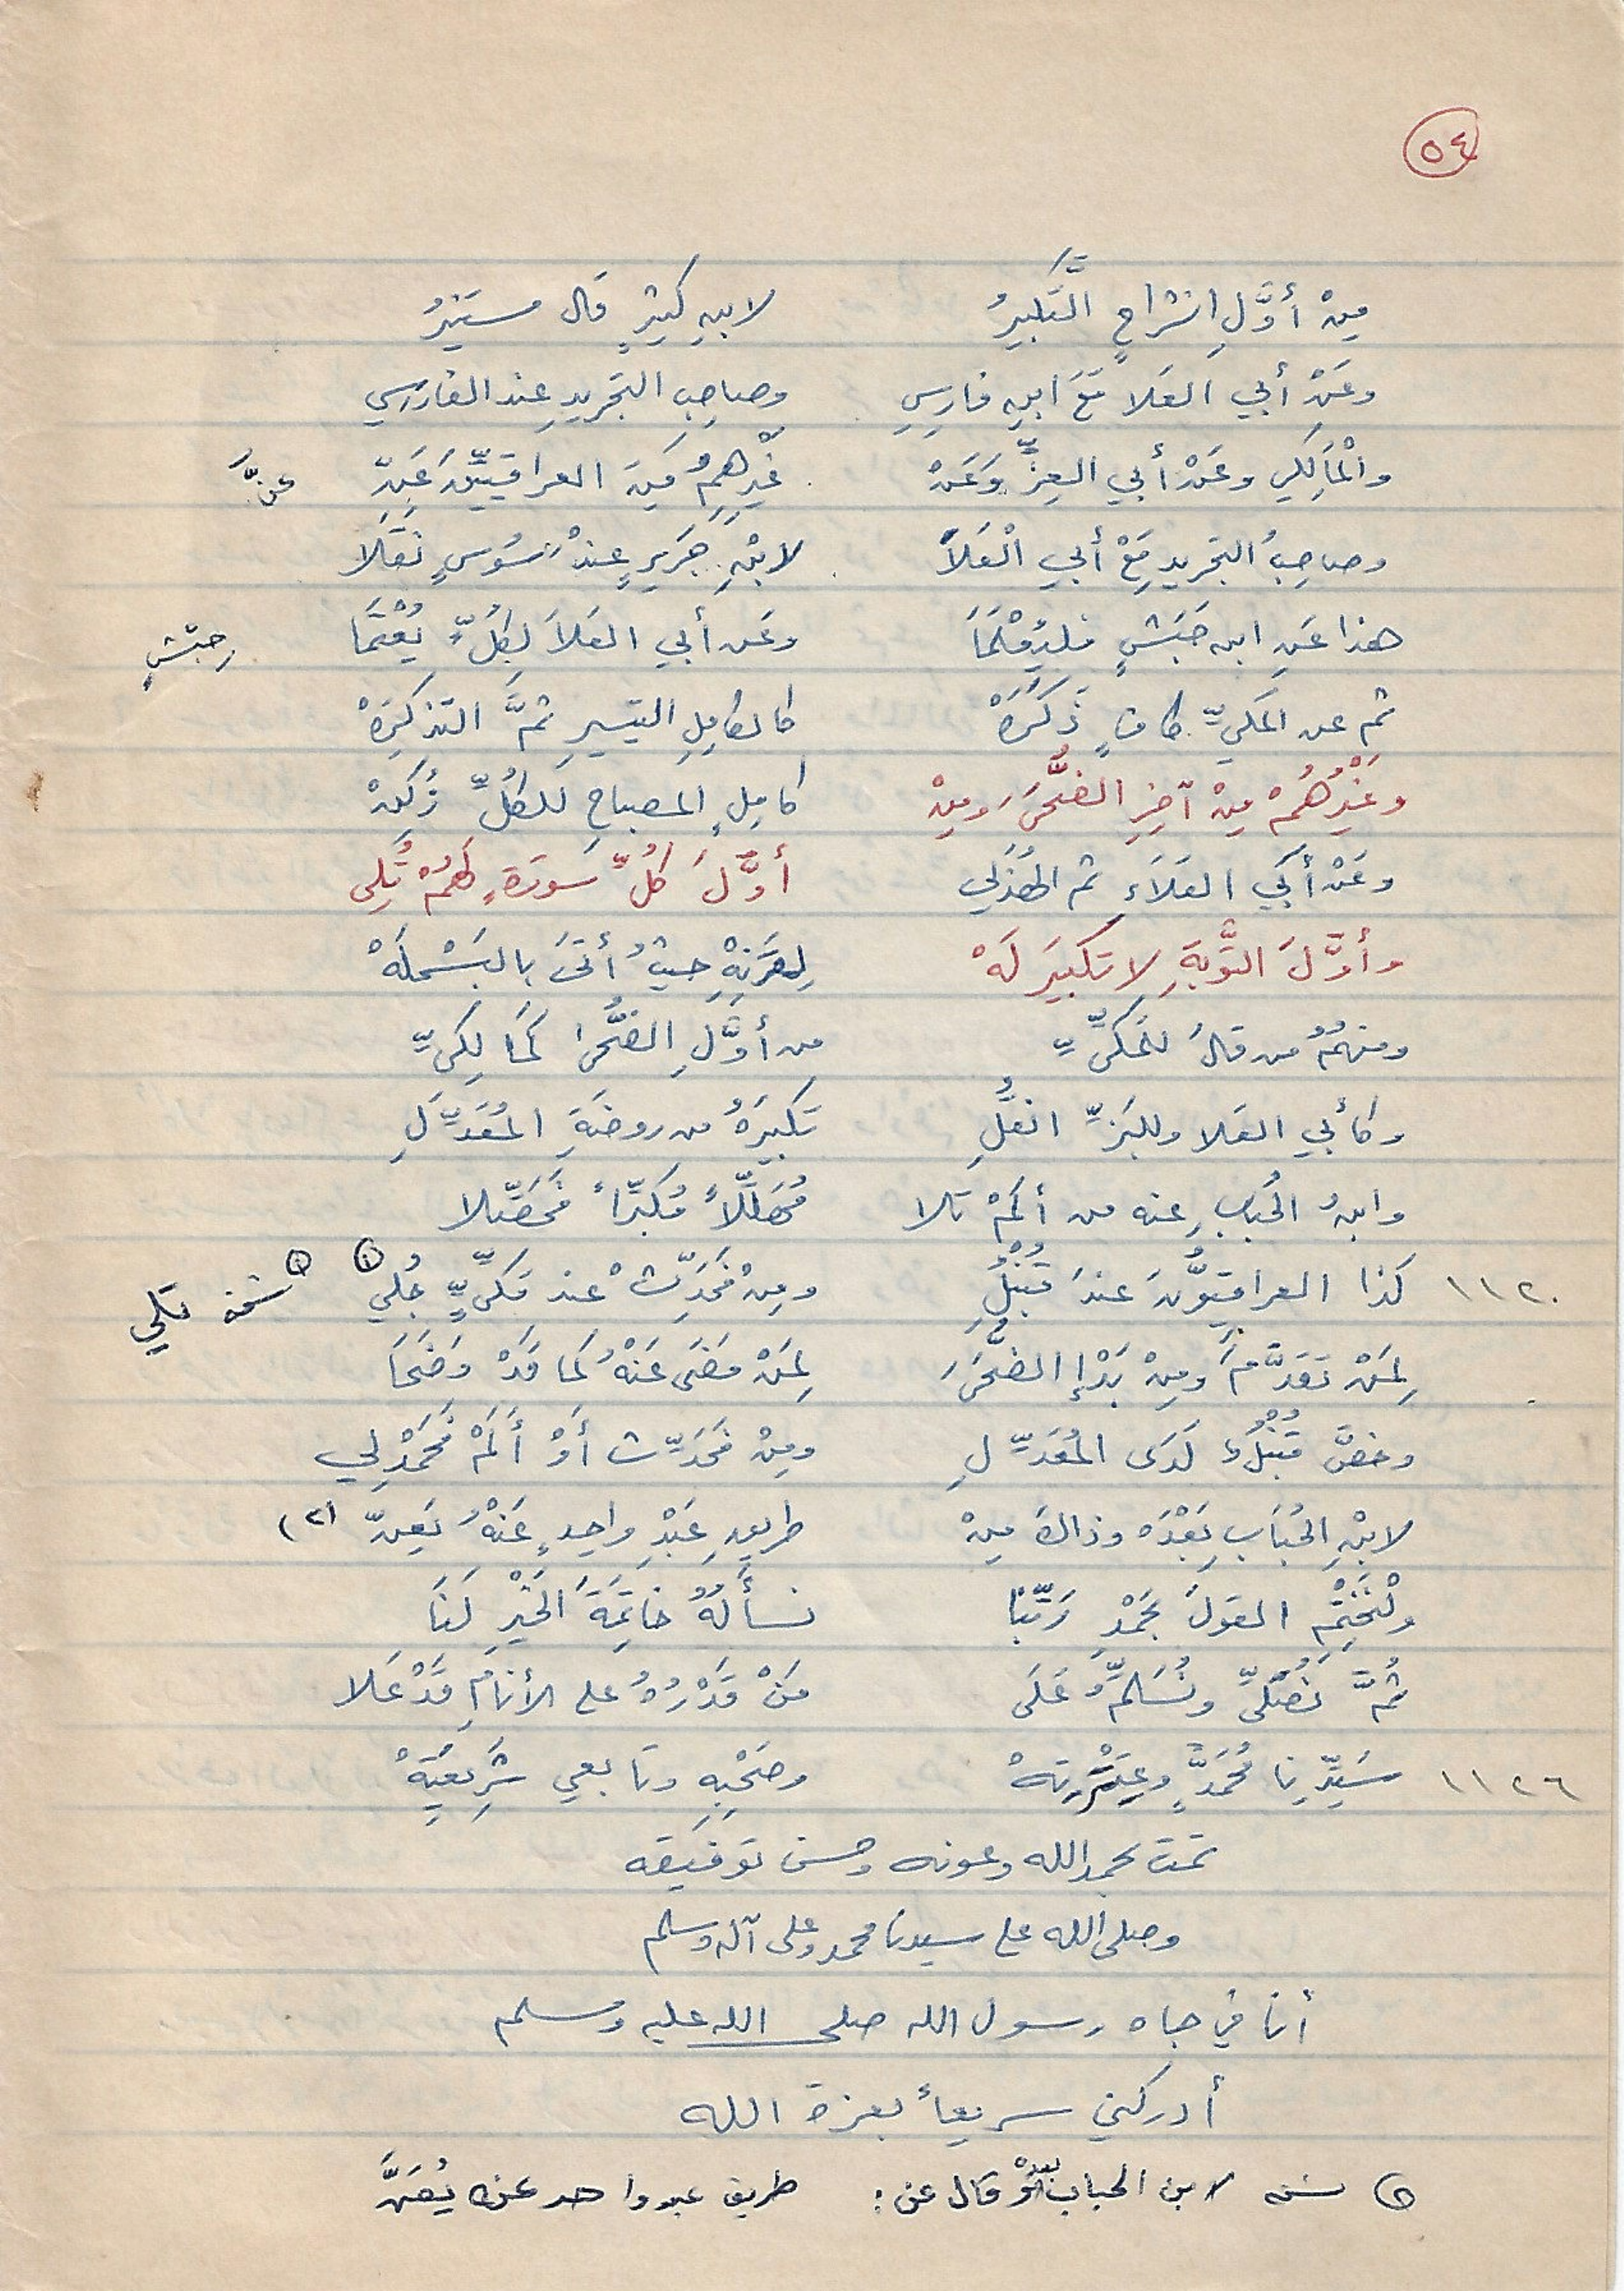 ٥٤
مِنْ أَوَّلِ انشراحٍ التَّكبيرُ لابنِ كثيرٍ قَال مستنيرُ
وعَنْ أبي العَلا مَعَ ابنِ فارِسِ وصاحِبِ التجريدِ عِند الفارسِي
والْمَالِكي وعَنْ أبي العِزِّ وَعَنْ غيرِهِمُ مِنَ العراقيِّينَ عَنّ عنَّ
وصاحِبُ التجريدِ مَعْ أبي الْعَلاَ لابْنِ جَرِيرٍ عِنْدَ سُوسٍ نَقَلاَ
هذا عَنِ ابن حَبَشٍ فليُعْلَمَا وعَن أبي العَلاَ لِكُلٍّ يُعْتَمَا حبَشٍ
ثم عن المَكيِّ كافٍ ذَكَرَهْ كالكامِلِ التيسيرِ ثمَّ التذكِرَهْ
وغَيْرُهُمْ مِنْ آخِرِ الضُّحَى وَمِنْ كامِلٍ المصباحِ لِلكُلِّ زُكِنْ
وعَنْ أبي العَلاَءِ ثم الهُذَلي أوَّلَ كُلِّ سورَةٍ لَهُمْ تُلِى
وأوَّلَ التَّوْبَةِ لا تكبيرَ لَهْ لِحمزةٍ حيثُ أتَى بالبَسْملَهْ
ومنهمُ من قالَ للمَكِّيِّ مِن أوَّلِ الضُّحَى كمَالِكيِّ
وكأبي العَلا وللبَزِّ انقُلِ تكبيرَهُ من روضَةِ المُعَدِّلِ
وابنُ الحُبابِ عنه من ألَمْ تلا مُهَلِّلاً مُكبِّراً فَحَصِّلا
١١٢٠ كَذا العراقيُّونَ عندَ قُنْبُلِ ومِنْ فَحَدِّثْ عند مَكِّيٍّ جُلي (١) (١) نسخة تلي
لِمَنْ تَقَدَّمَ ومِنْ بَدْءِ الضُّحَى لِمَنْ مَضَى عَنْهُ كَمَا قَدْ وَضَحَا
وخصَّ قُنْبُلٌ لَدَى المُعَدِّلِ ومِنْ فَحَدِّث أَوْ أَلَمْ فَحَمْدِلِي
لابْنِ الحُبَابِ بَعْدَه وذاكَ مِنْ طريقِ عَبْدِ واحِدٍ عَنْهُ يَعِنّ (٢)
ولْنَخْتِمِ القولَ بحَمْدِ رَبِّنَا نسألُهُ خاتِمَةَ الخَيْرِ لَنَا
ثُمَّ نُصَلِّي ونُسَلِّمُ عَلَى مَنْ قَدْرُهُ على الأنامِ قَدْ عَلا
١١٢٦ سَيِّدِنا مُحَمَّدٍ وعِتْرَتِهْ وصَحْبِهِ وتابعي شَرِيعَتِهْ
تمت بحمد الله وعونه وحسن توفيقه
وصلى الله على سيدنا محمد وعلى آله وسلم
أنا في جاه رسول الله صلى الله عليه وسلم
أدركني سريعاً بعزة الله
(٢) نسخة لابن الحباب بعدُ قال عن : طريق عبد واحد عنه يُعَنَّ